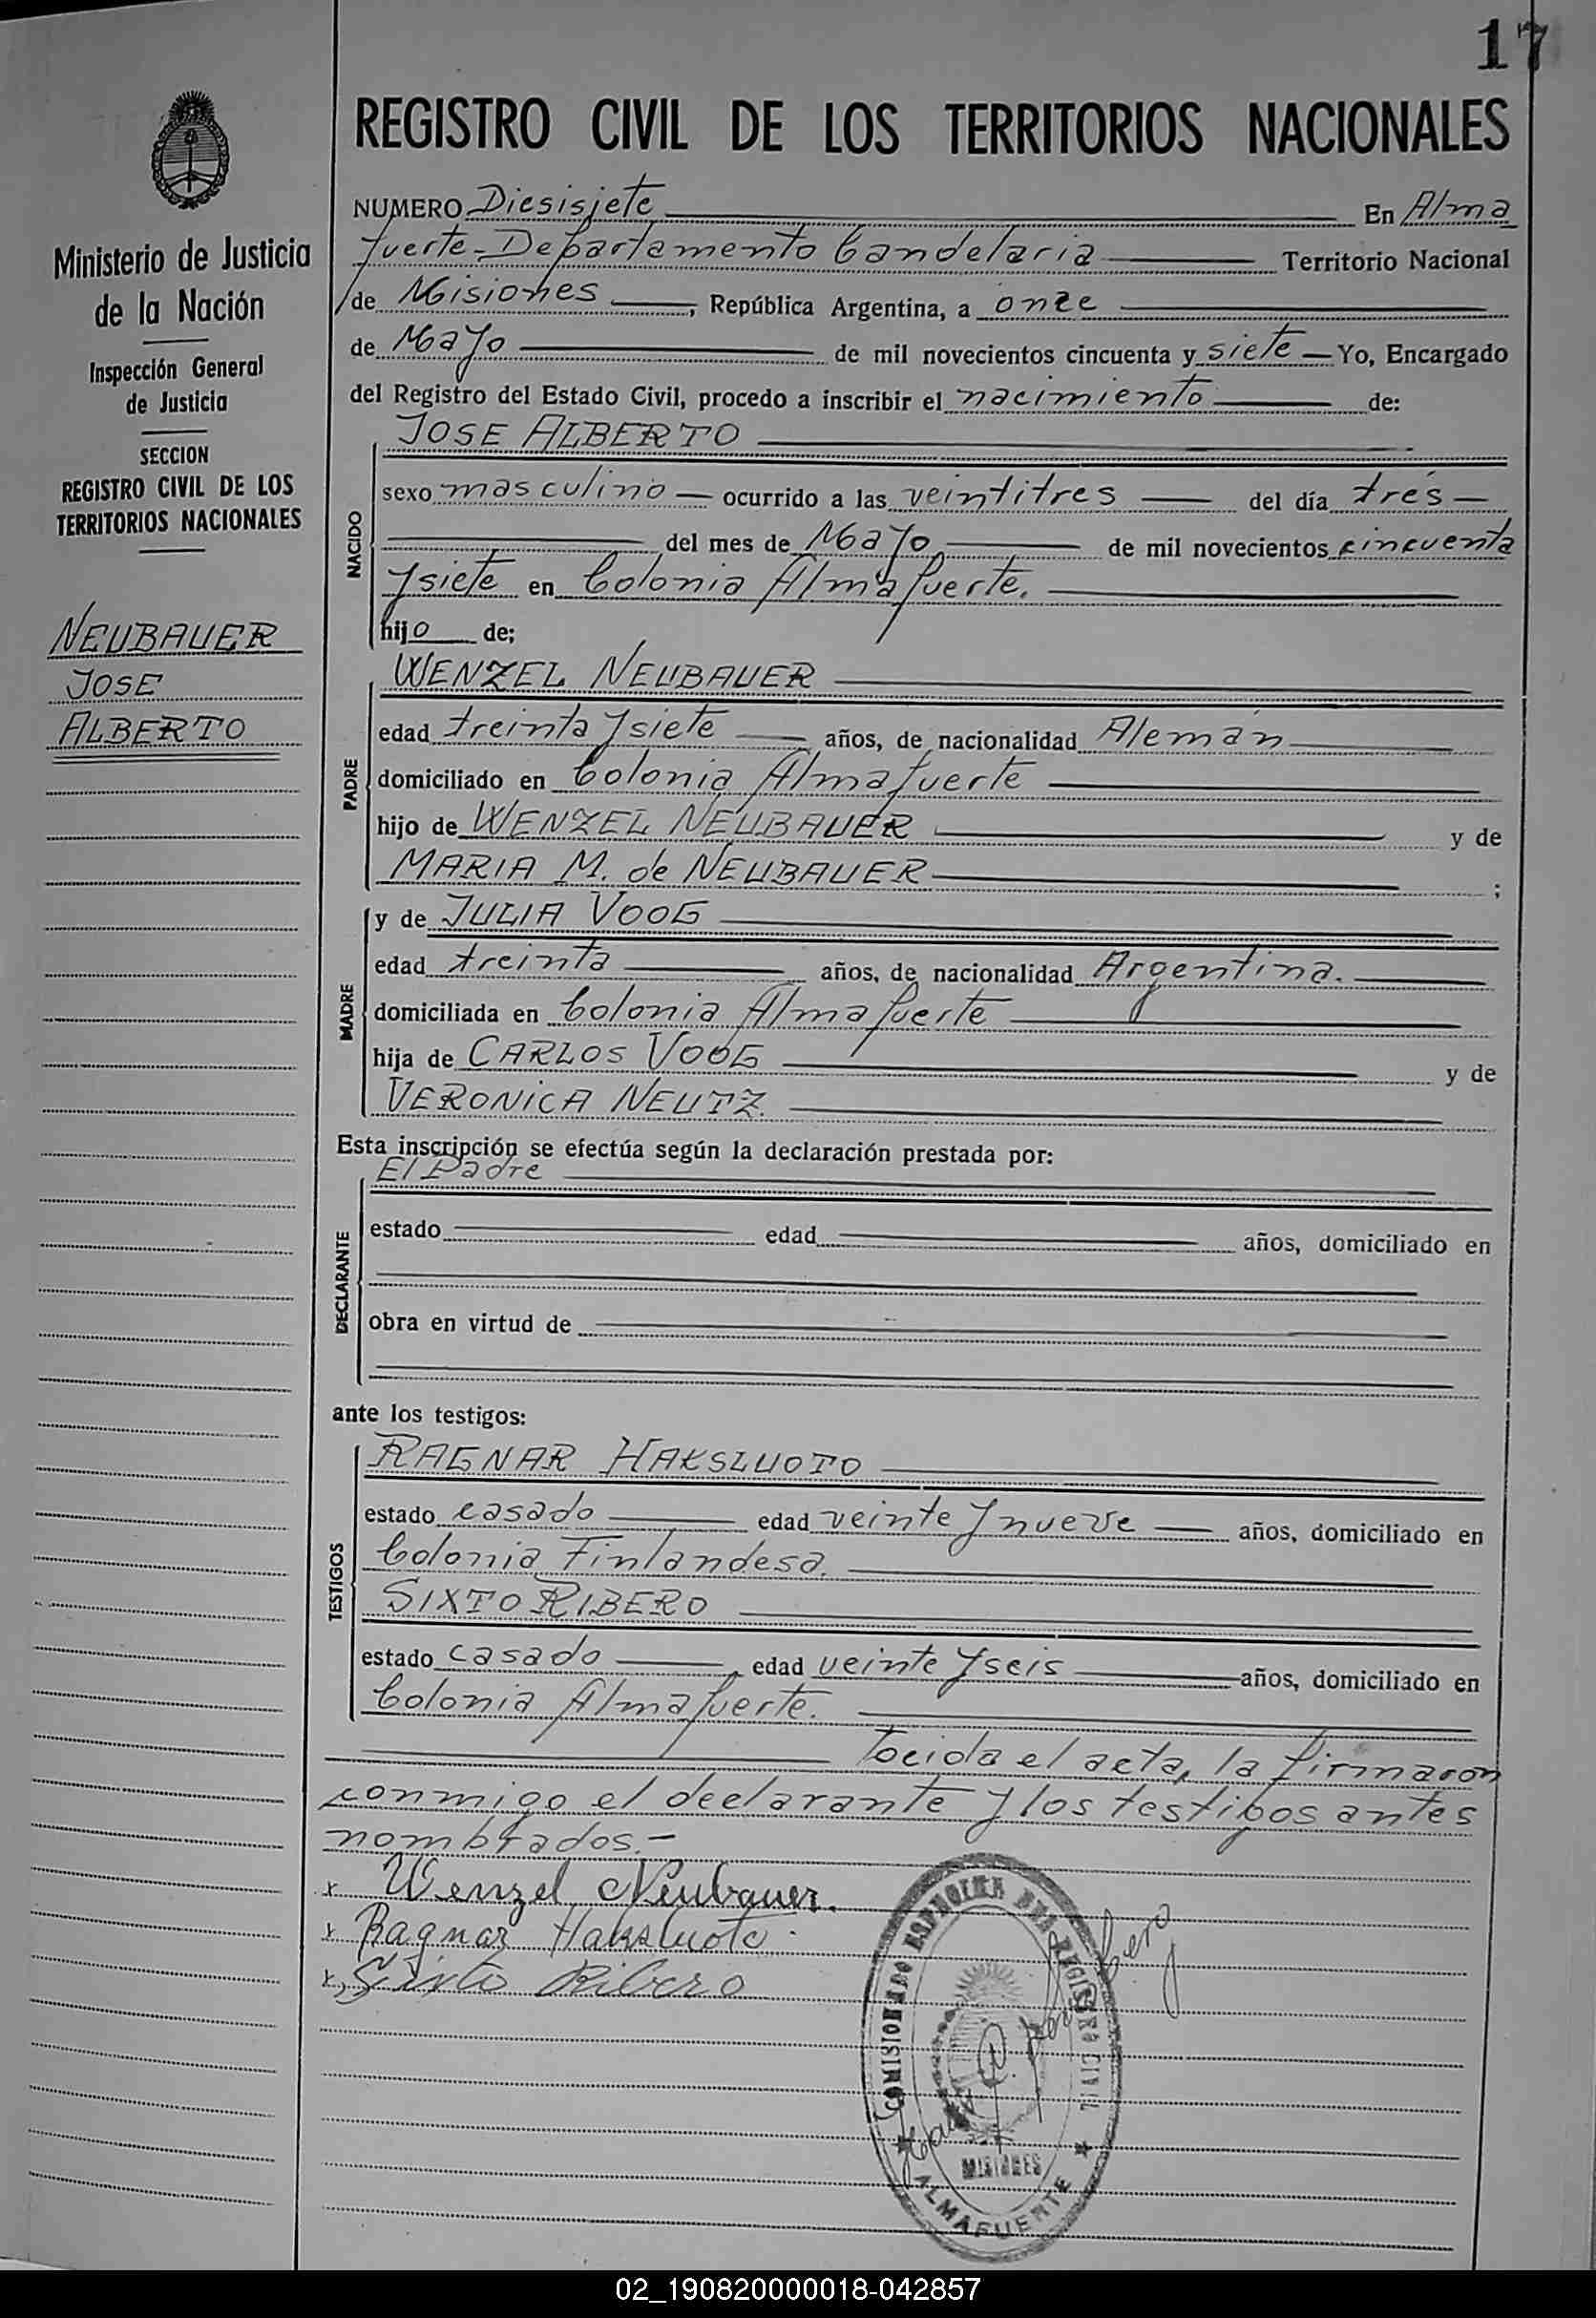 17
REGISTRO CIVIL DE LOS TERRITORIOS NACIONALES
Ministerio de Justicia
de la Nación
Inspección General
de Justicia
SECCION
REGISTRO CIVIL DE LOS
TERRITORIOS NACIONALES
NEUBAUER
JOSE
ALBERTO
NUMERO Diesisiete En Alma
fuerte-Departamento Candelaria Territorio Nacional
de Misiones, República Argentina, a once
de Mayo de mil novecientos cincuenta y siete Yo, Encargado
del Registro del Estado Civil, procedo a inscribir el nacimiento de:
NACIDO
JOSE ALBERTO
sexo masculino ocurrido a las veintitres del día tres
del mes de Mayo de mil novecientos cincuenta
y siete en Colonia Almafuerte.
hijo de;
PADRE
WENZEL NEUBAUER
edad treinta y siete años, de nacionalidad Alemán
domiciliado en Colonia Almafuerte
hijo de WENZEL NEUBAUER y de
MARIA M. de NEUBAUER ;
MADRE
y de JULIA VOOG
edad treinta años, de nacionalidad Argentina.
domiciliada en Colonia Almafuerte
hija de CARLOS VOOG y de
VERONICA NEUTZ.
Esta inscripción se efectúa según la declaración prestada por:
DECLARANTE
El Padre
estado edad años, domiciliado en
obra en virtud de
ante los testigos:
TESTIGOS
RAGNAR HAKSLUOTO
estado casado edad veinte y nueve años, domiciliado en
Colonia Finlandesa.
SIXTO RIBERO
estado casado edad veinte y seis años, domiciliado en
Colonia Almafuerte.
el acta, la firmaron
conmigo el declarante y los testigos antes
nombrados.-
x Wenzel Neubauer.
x Ragnar Haksluoto.
x Sixto Ribero
REGISTRO CIVIL
MISIONES
ALMAFUERTE
02_190820000018-042857